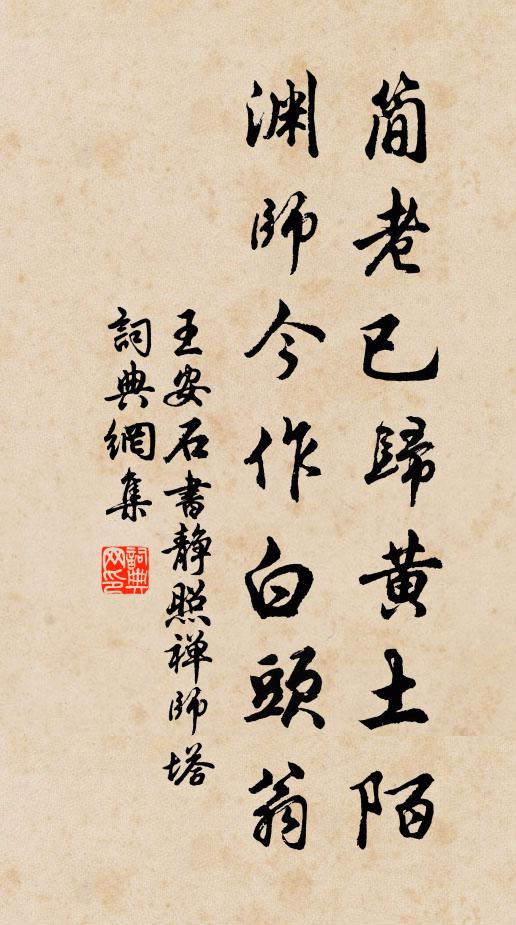 簡老已歸黃土陌
淵師今作白頭翁
王安石書靜照禅師塔
詞典網集
詞典網印